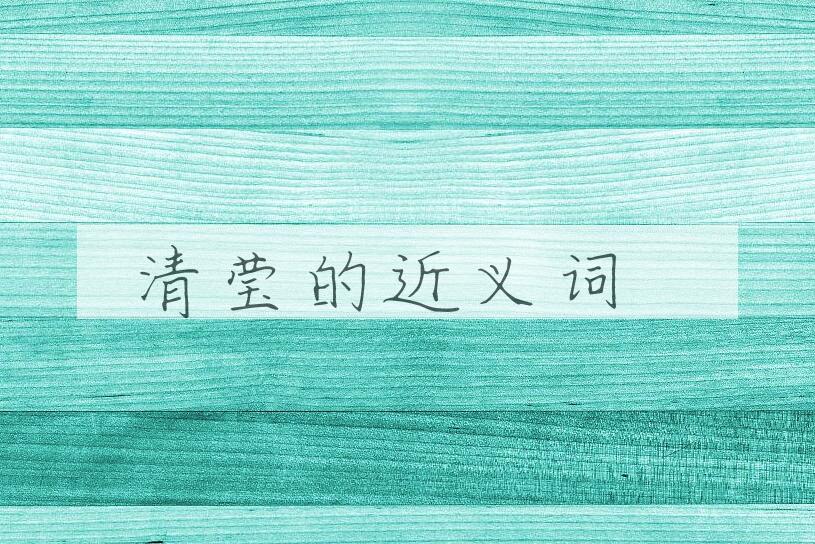 清莹的近义词